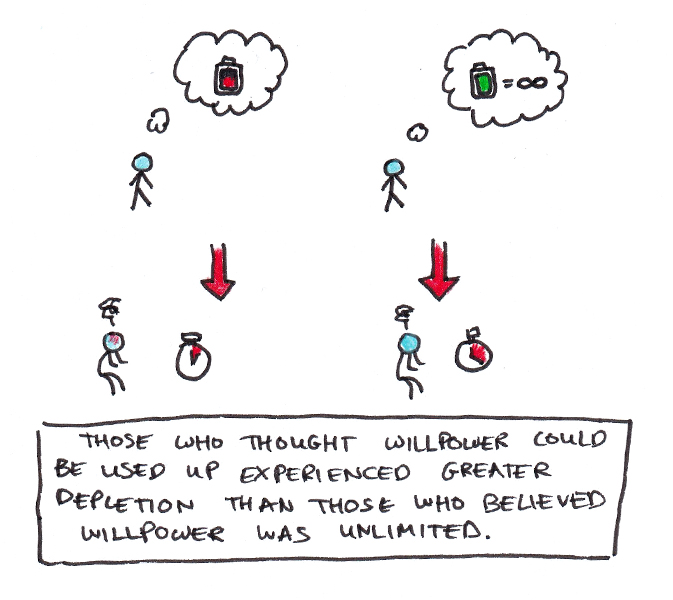 = ∞
THOSE WHO THOUGHT WILLPOWER COULD
BE USED UP EXPERIENCED GREATER
DEPLETION THAN THOSE WHO BELIEVED
WILLPOWER WAS UNLIMITED.